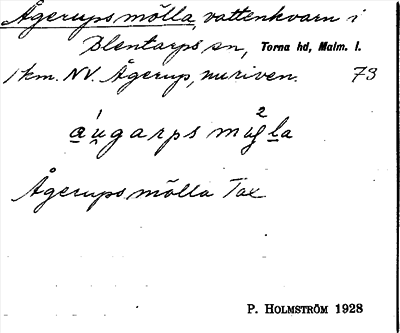 Ågerups mölla, vattenkvarn i
Blentarps sn, Torna hd, Malm. l.
1 km. NV. Ågerup, nu riven. 73
Ågerups mölla Tax
P. HOLMSTRÖM 1928